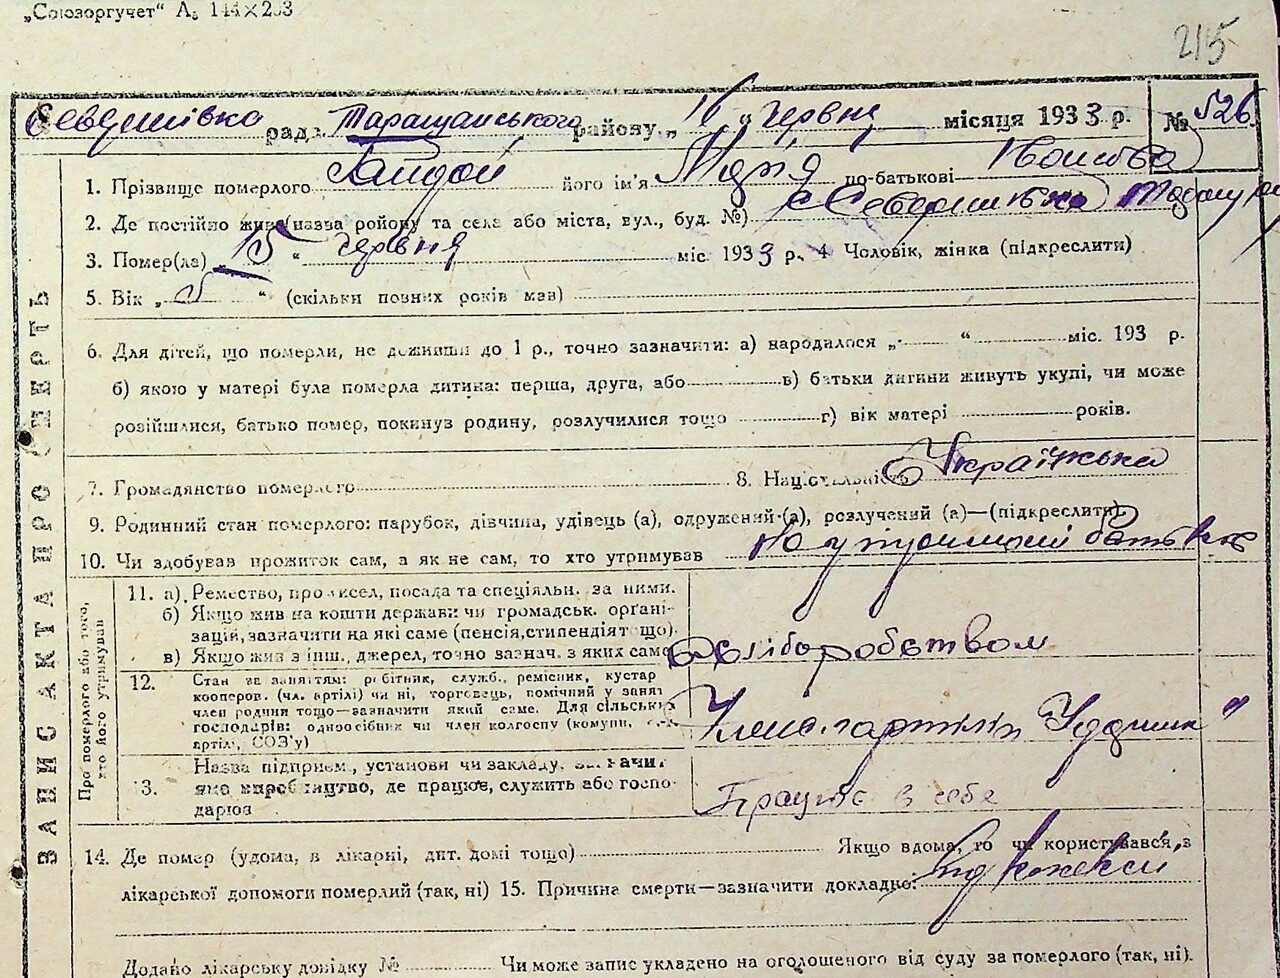 „Союзоргучет“ А₅ 144×203
215
рада Таращанського району „16“ червня місяця 1933 р. № 526
1. Прізвище померлого Гайдай його ім'я Марія по-батькові
2. Де постійно жив (назва району та села або міста, вул., буд. №)
3. Помер(ла) „15“ червня міс. 1933 р. 4 Чоловік, жінка (підкреслити)
5. Вік „5“ (скільки повних років мав)
6. Для дітей, що померли, не доживши до 1 р., точно зазначити: а) народилося „ “ міс. 193 р.
б) якою у матері була померла дитина: перша, друга, або в) батьки дитини живуть укупі, чи може
розійшлися, батько помер, покинув родину, розлучилися тощо г) вік матері років.
7. Громадянство померлого 8. Національність Українська
9. Родинний стан померлого: парубок, дівчина, удівець (а), одружений (а), розлучений (а)—(підкреслити).
10. Чи здобував прожиток сам, а як не сам, то хто утримував На утриманні батьків
ЗАПИС АКТА ПРО СМЕРТЬ
Про померлого або того, хто його утримував
11. а) Ремество, промисел, посада та спеціяльн. за ними.
б) Якщо жив на кошти держави чи громадськ. орґані-
зацій, зазначити на які саме (пенсія, стипендія тощо).
в) Якщо жив з інш., джерел, точно зазнач. з яких саме
Хліборобством
12. Стан за заняттям: робітник, служб., ремісник, кустар
кооперов. (чл. артілі) чи ні, торговець, помічний у занят
член родини тощо—зазначити який саме. Для сільськ
господарів: одноосібник чи член колгоспу (комуни, с.-г.
артілі, СОЗ'у)
Член с г артілі
13. Назва підприєм., установи чи закладу, зазначит
яке виробництво, де працює, служить або госпо-
дарює
Працює в себе
14. Де помер (удома, в лікарні, дит. домі тощо) Якщо вдома, то чи користувався з
лікарської допомоги померлий (так, ні) 15. Причина смерти—зазначити докладно:
Додано лікарську довідку № Чи може запис укладено на оголошеного від суду за померлого (так, ні).